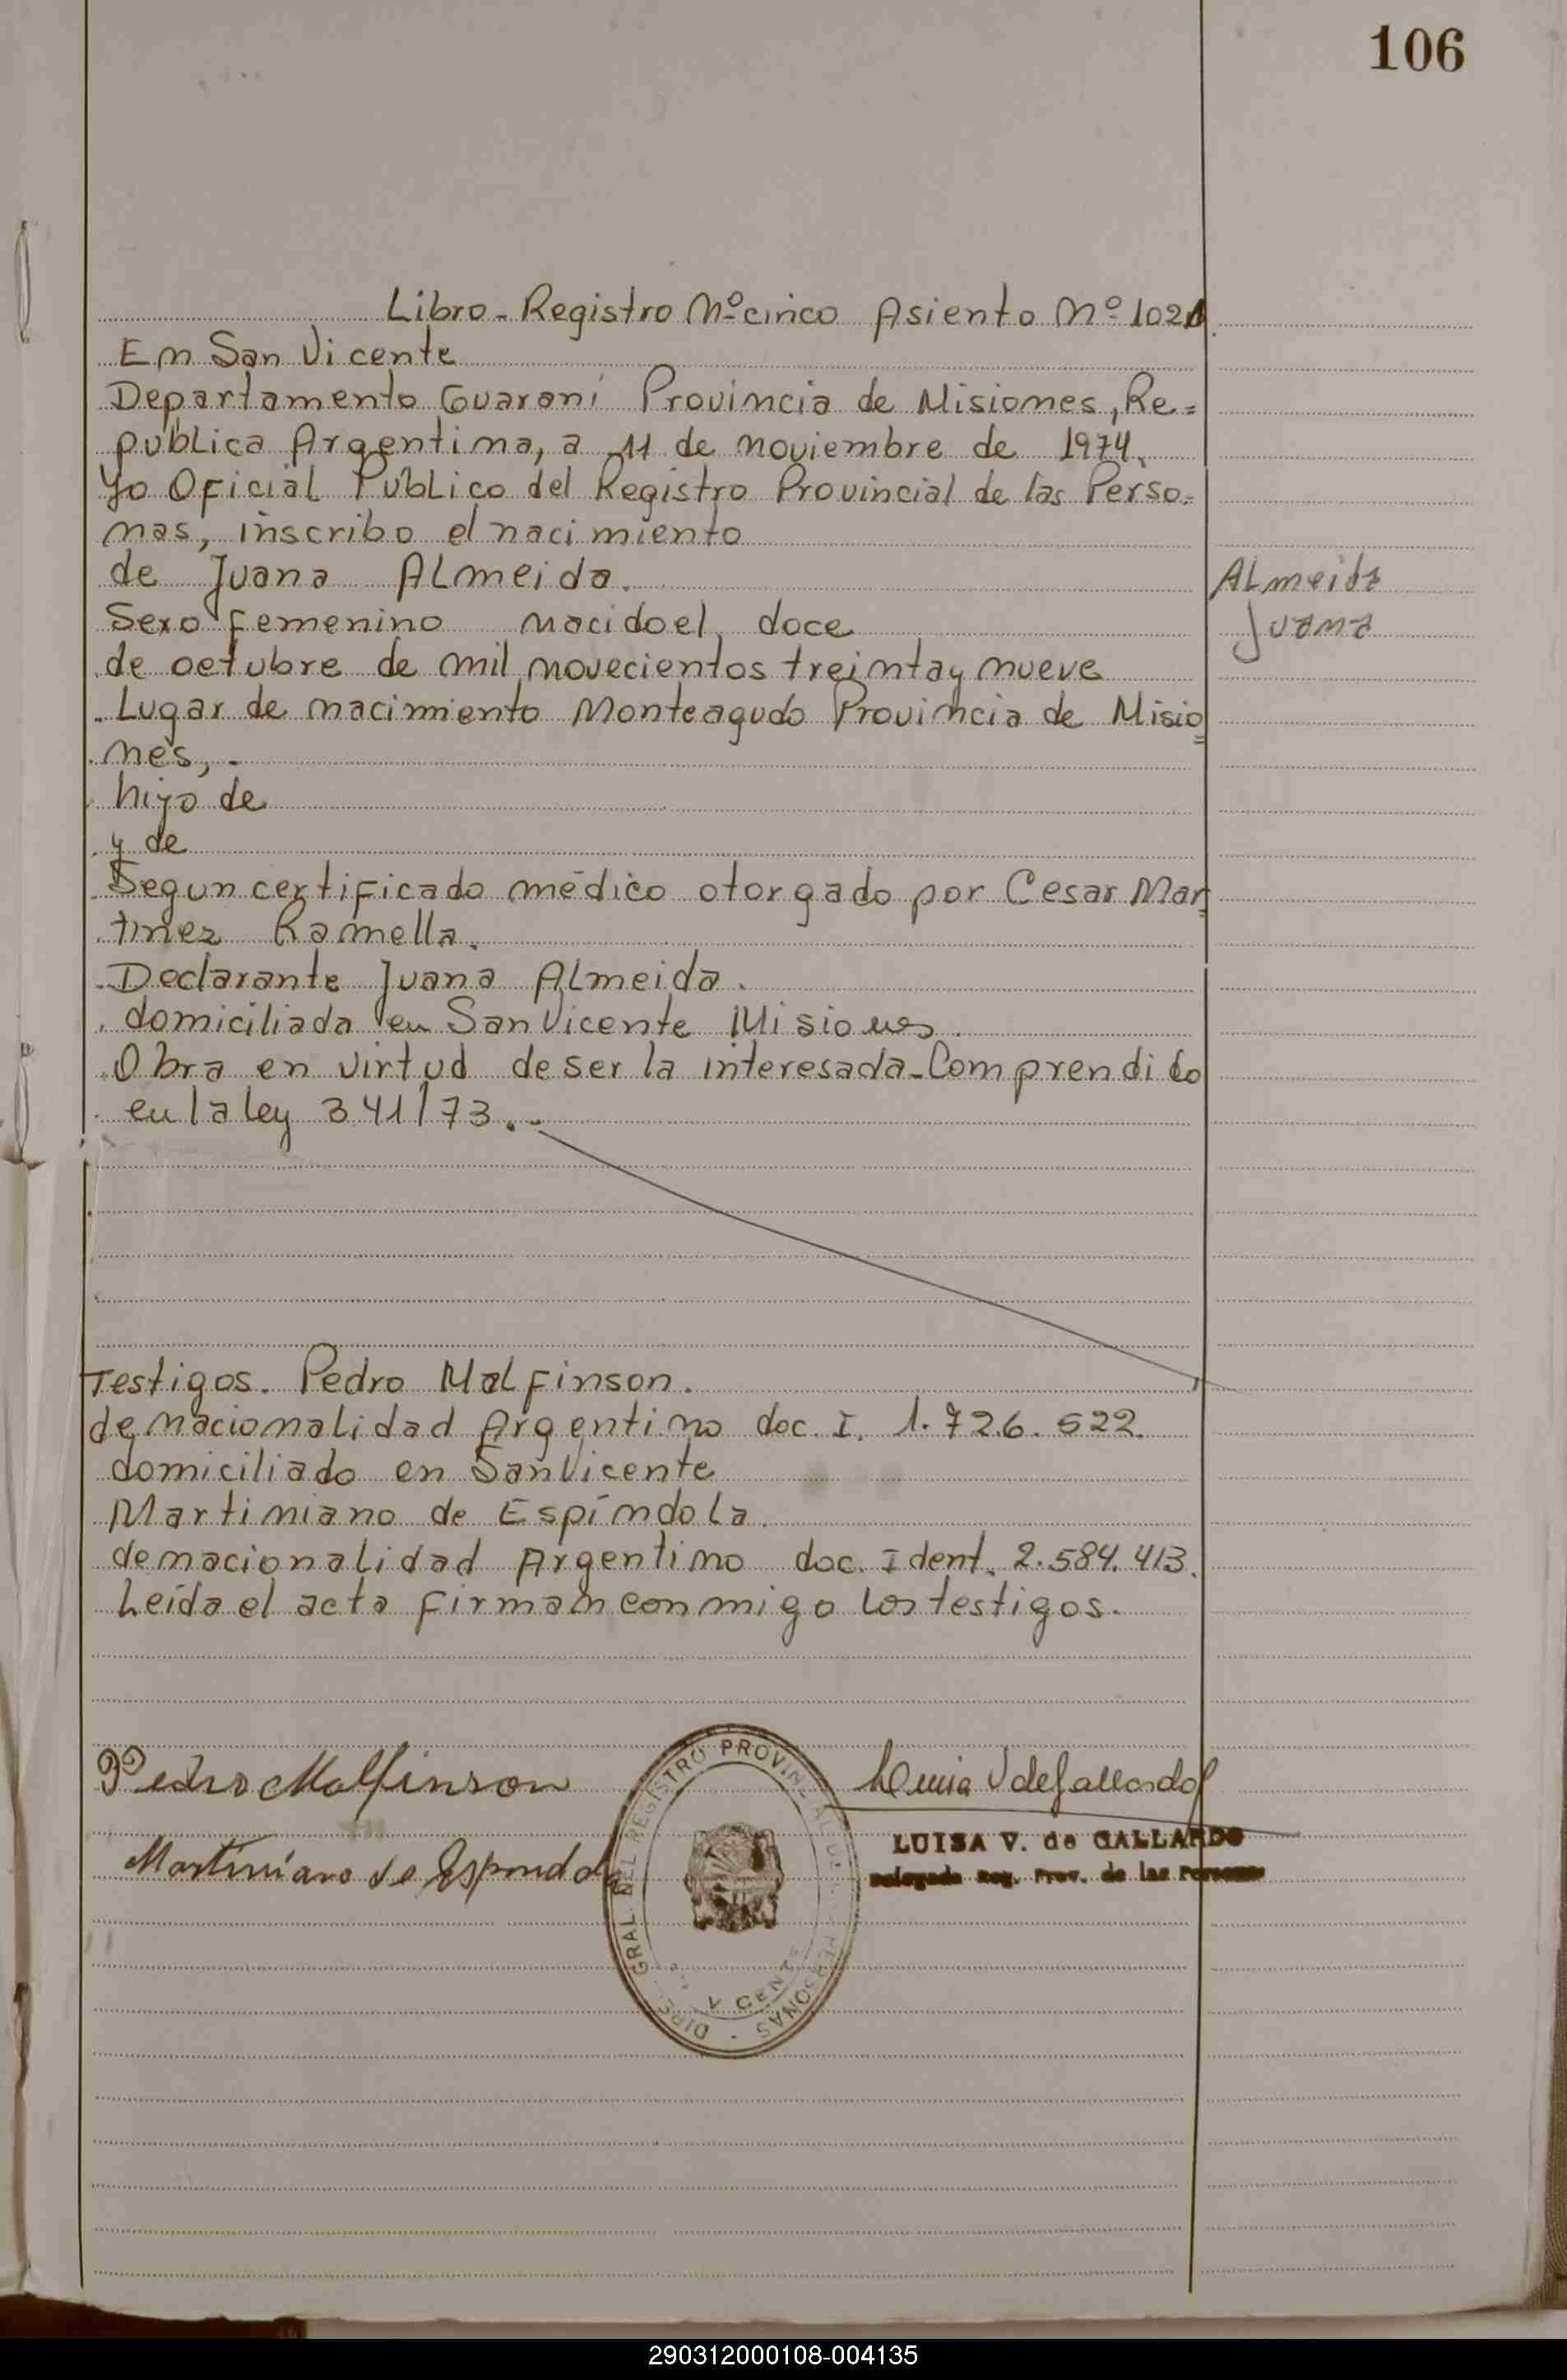 106
Libro-Registro Nº cinco Asiento Nº 1021
En San Vicente
Departamento Guaraní Provincia de Misiones, Re=
pública Argentina, a 11 de noviembre de 1974.
Yo Oficial Público del Registro Provincial de las Perso=
nas, inscribo el nacimiento
de Juana Almeida.
Almeida
Sexo femenino nacido el doce
Juana
de octubre de mil novecientos treinta y nueve
Lugar de nacimiento Monteagudo Provincia de Misio=
nes,.
hijo de
y de
Segun certificado médico otorgado por Cesar Mar=
tinez Ramella.
Declarante Juana Almeida.
domiciliada en San Vicente Misiones.
Obra en virtud de ser la interesada-Comprendido
en la ley 341/73.-
Testigos. Pedro Malfinson.
de nacionalidad Argentino doc. I. 1.726.522.
domiciliado en San Vicente
Martiniano de Espíndola.
de nacionalidad Argentino doc. Ident. 2.584.413.
Leída el acta firman conmigo los testigos.
Pedro Malfinson
Luisa V de Gallardo
LUISA V. de GALLARDO
Delegada Reg. Prov. de las Personas
Martiniano de Espindola
GRAL DEL REGISTRO PROVINCIAL DE PERSONAS
290312000108-004135